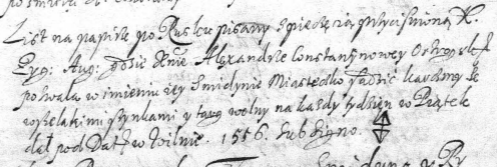 List na papirze po Rusku pisany s pieczęcią przyciśnioną K.
Zyg: Aug: Alexandrze Constantynowey Ostrogskiey
pozwala w imieniu iey Smidynie Miasteczko sadzić karczmy ze
wszelakimi szynkami y targ wolny na każdy tydzień w Piątek
dał pod Datą w Wilnie. 1556. Sub Signo.